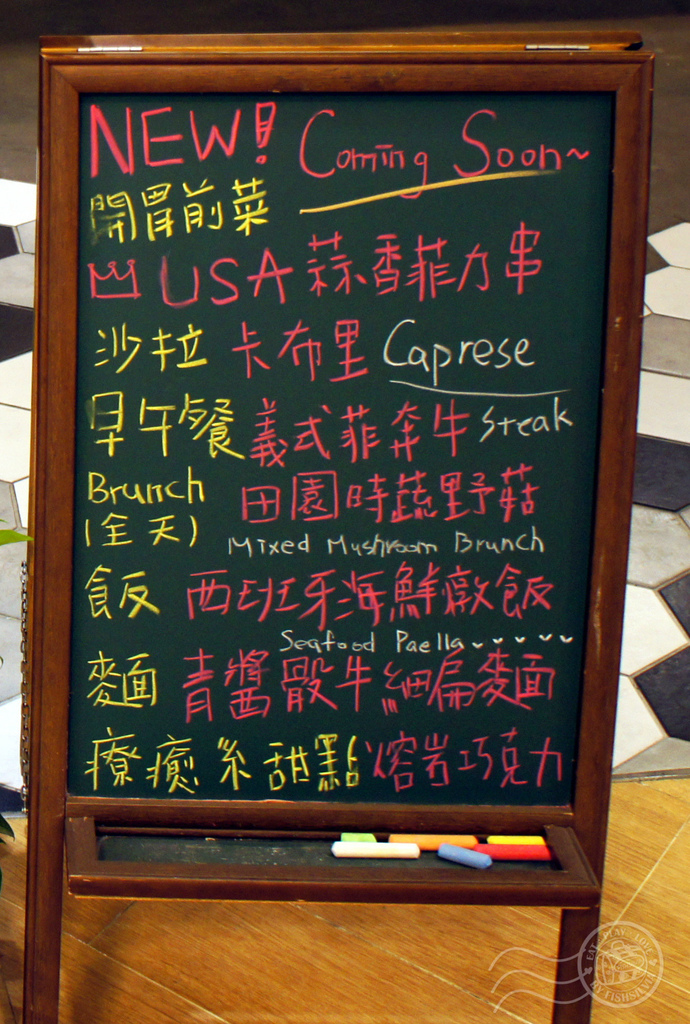 NEW! Coming Soon~
開胃前菜
USA 蒜香菲力串
沙拉 卡布里 Caprese
早午餐 義式菲奔牛 Steak
Brunch 田園時蔬野菇
(全天) Mixed Mushroom Brunch
飯 西班牙海鮮燉飯
Seafood Paella
麵 青醬骰牛細扁麵
療癒系甜點 熔岩巧克力
EAT PLAY LOVE
BY FISHSILVIA